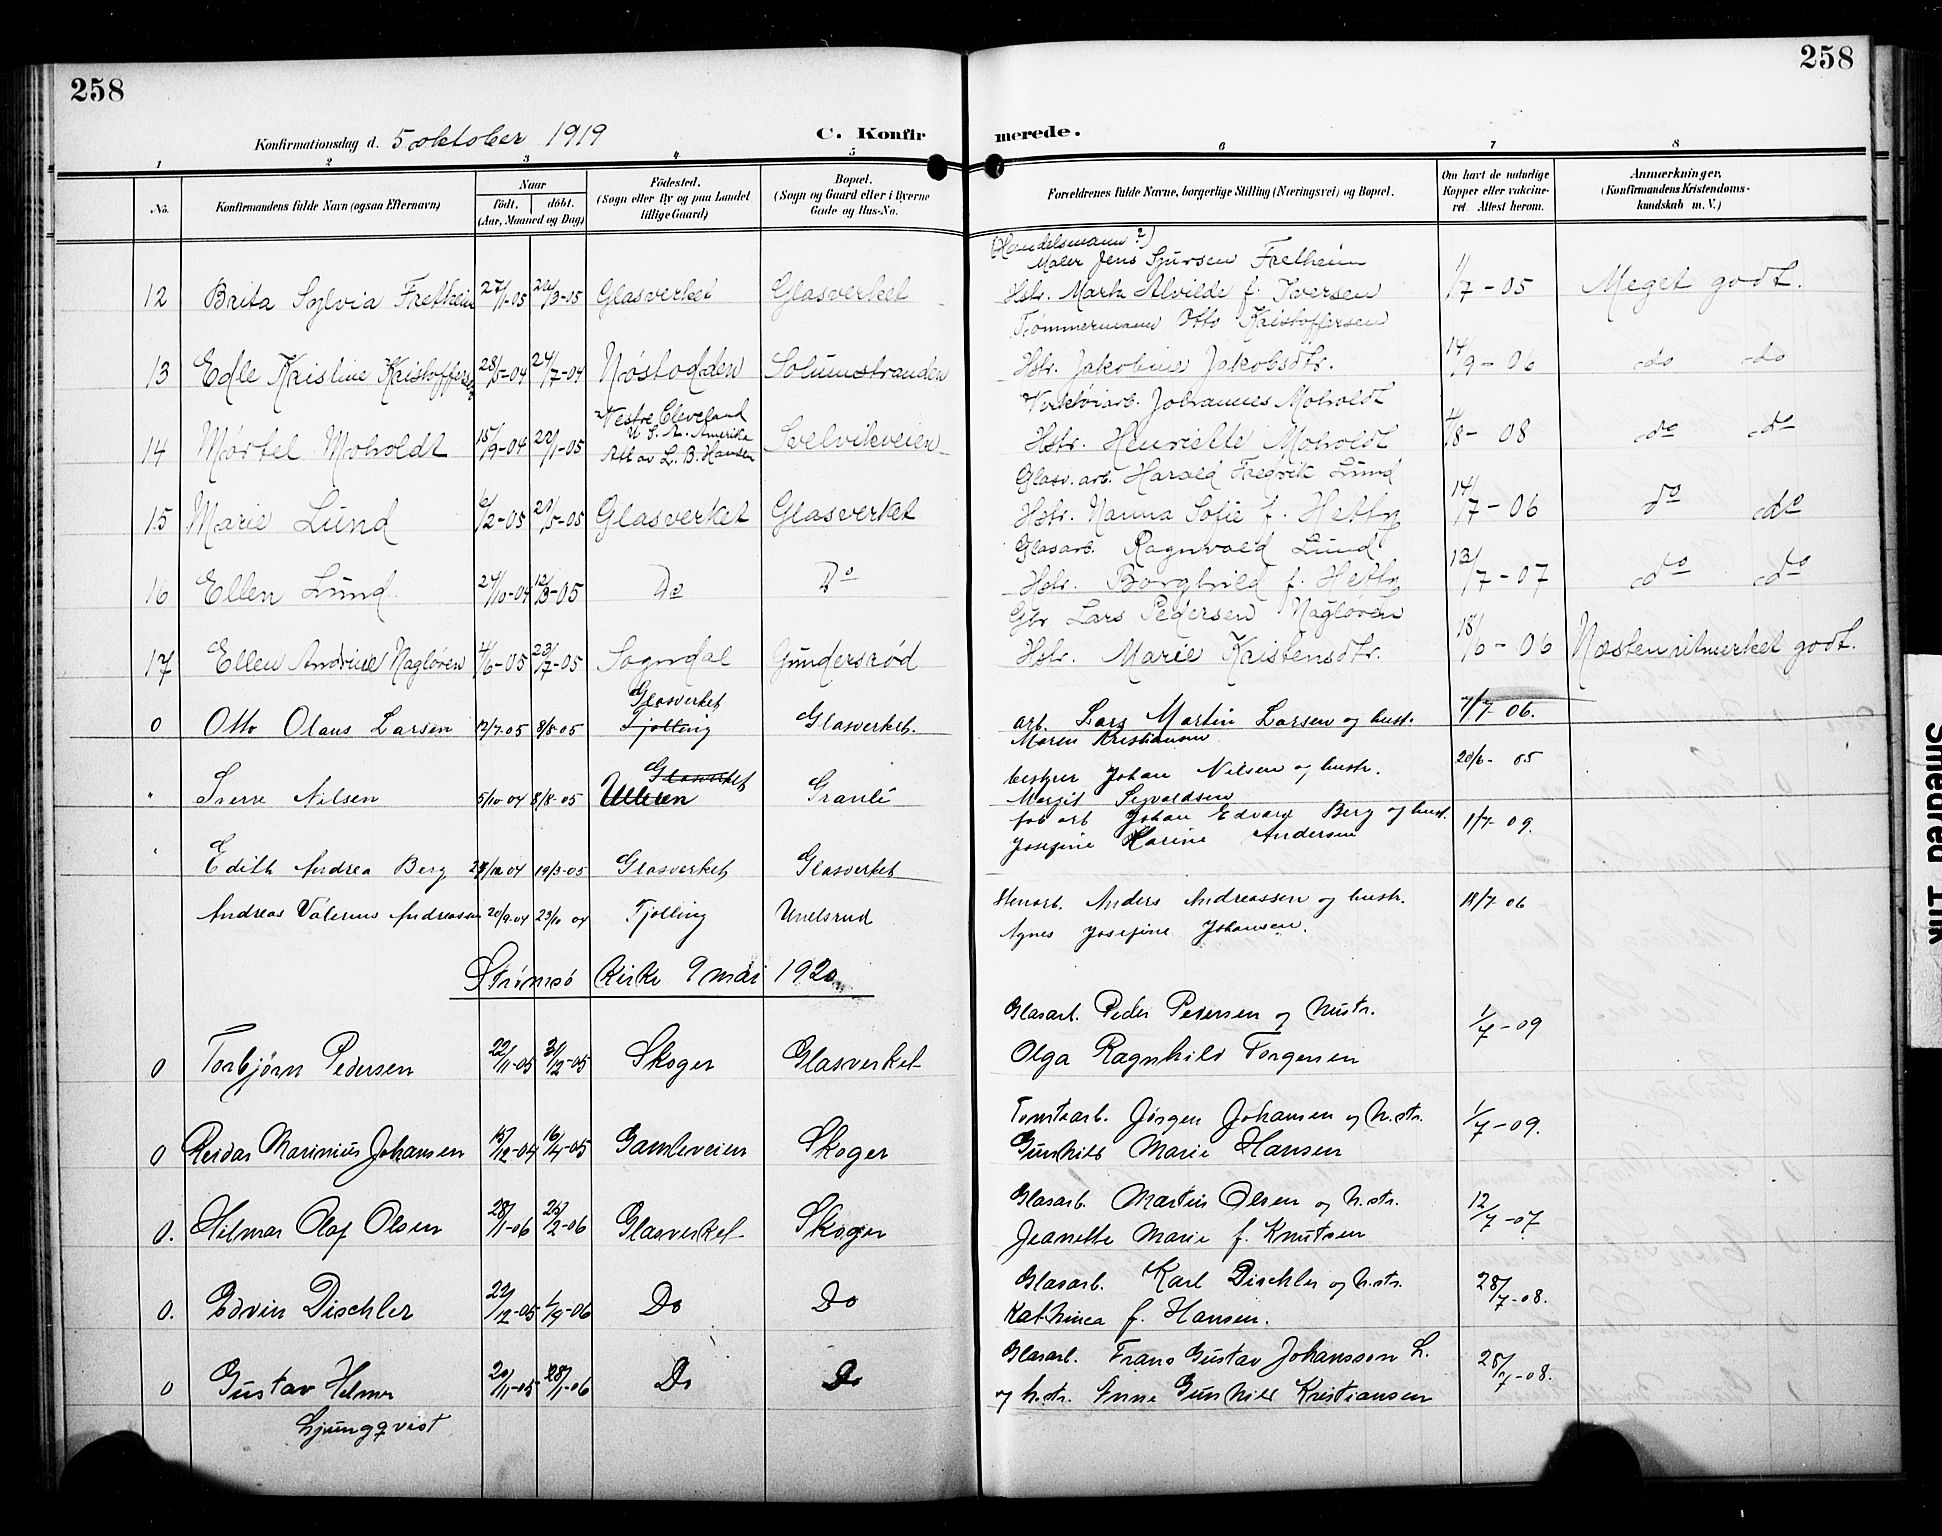 258
258
Konfirmationsdag d. 5 oktober 1919
C. Konfirmerede.
1 2 3 4 5 6 7 8
No. Konfirmandens fulde Navn (ogsaa Efternavn) Naar Født. døbt. (Aar, Maaned og Dag) Fødested. (Sogn eller By og paa Landet tillige Gaard) Bopæl. (Sogn og Gaard eller i Byerne Gade og Hus-No. Forældrenes fulde Navne, borgerlige Stilling (Næringsvei) og Bopæl. Om havt de naturlige Kopper eller vakcineret. Attest herom. Anmærkninger, (Konfirmandens Kristendomskundskab m. V.)
(Handelsmann?)
Maler Jens Sjursen Fretheim
12 Brita Sylvia Fretheim 27/1-05 26/3-05 Glasverket Glasverket Hstr. Mark Alvilde f. Iversen 11/7-05 Meget godt.
Tømmermann Otto Kristoffersen
13 Edle Kristine Kristoffersen 28/5-04 24/7-04 Nøstodden Solumstranden Hstr. Jakobine Jakobsdtr. 14/9-06 do do
Verktøiarb. Johannes Moholdt
14 Mørtel Moholdt 15/9-04 22/1-05 Vestre Cleveland U.S.A. Amerika Att av L. B. Hansen Svelvikveien Hstr. Henriette Moholdt 4/8-08 do do
Glasv. arb. Harald Fredrik Lund
15 Marie Lund 6/2-05 21/5-05 Glasverket Glasverket Hstr. Nanna Sofie f. Hetty 14/7-06 do do
Glasarb. Ragnvald Lund
16 Ellen Lund 24/10-04 12/3-05 Do Do Hstr. Borghild f. Hetty 13/7-07 do do
Gbr. Lars Pedersen Nagløren
17 Ellen Andrine Nagløren 4/6-05 23/7-05 Sogndal Gundersrød Hstr. Marie Kristensdtr. 18/6-06 Næsten utmerket godt.
0 Otto Olaus Larsen 12/7-05 8/8-05 Glasverket Tjølling Glasverket. arb. Lars Martin Larsen og hust. 7/7-06.
Maren Kristiansen
" Sverre Nilsen 5/10-04 8/8-05 Glasverket Ulleren Granli bestyrer Johan Nilsen og hustr. 20/6-05
Margit Sevaldsen
" Edith Andrea Berg 24/12 04 19/3-05 Glasverket Glasverket fab arb Johan Edvard Berg og hust. 1/7-09.
Josefine Karine Andersen
Andreas Valerius Andreassen 20/9-04 23/10 04 Tjølling Unelsrud Stenarb. Anders Andreassen og hustr. 18/7 06
Agnes Josefine Johansen.
Strømsø Kirke 9 mai 1920
Glasarb. Peder Pedersen og hustr.
0 Torbjørn Pedersen 22/11-05 31/12-05 Skoger Glasverket Olga Ragnhild Torgersen 1/7-09
Tomtearb. Jørgen Johansen og h.str.
0 Reidar Marinius Johansen 15/12-04 16/4-05 Gamleveien Skoger Gunhild Marie Hansen 1/7-09.
Glasarb. Martin Olsen og h.str.
0. Hilmar Olaf Olsen 28/1-06 25/2-06 Glasverket Skoger Jeanette Marie f. Knutsen 12/7-07
Glasarb. Karl Dischler og h.str.
0. Edvin Dischler 22/12-05 1/4-06 Do Do Kathinca f. Hansen. 28/7-08.
Glasarb. Frans Gustav Johansson L.
0 Gustav Helmer Ljungqvist 20/11-05 28/1-06 Do Do og h.str. Anne Gunhild Kristiansen 28/7-08.
Smedrud Trik